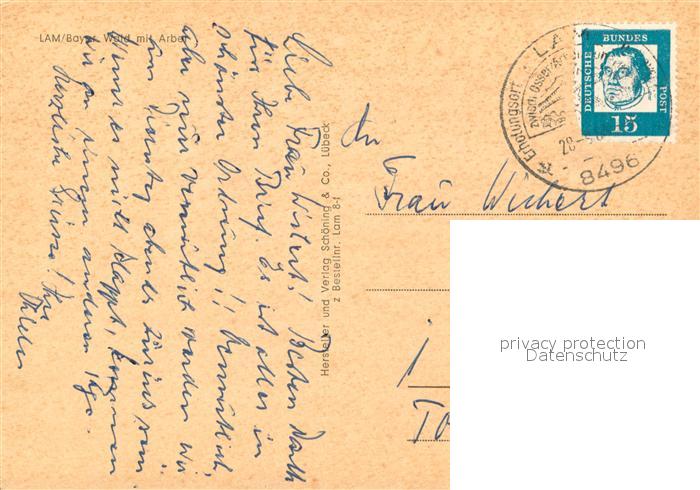 LAM/Bayer. Wald mit Arber
Liebe Frau Wichert! Besten Dank
für Ihren Brief. Es ist alles in
schönster Ordnung!! Vermutlich,
aber nur vermutlich werden wir
am Dienstag abends zurück sein.
Wenn es nicht klappt, kommen
wir an einem anderen Tage.
Herzliche Grüsse! Ihre
Hersteller und Verlag Schöning & Co., Lübeck
z Bestellnr. Lam 8-f
Erholungsort LAM
zwisch. Osser
28
8496
DEUTSCHE BUNDES POST
15
An
Frau Wichert
privacy protection
Datenschutz